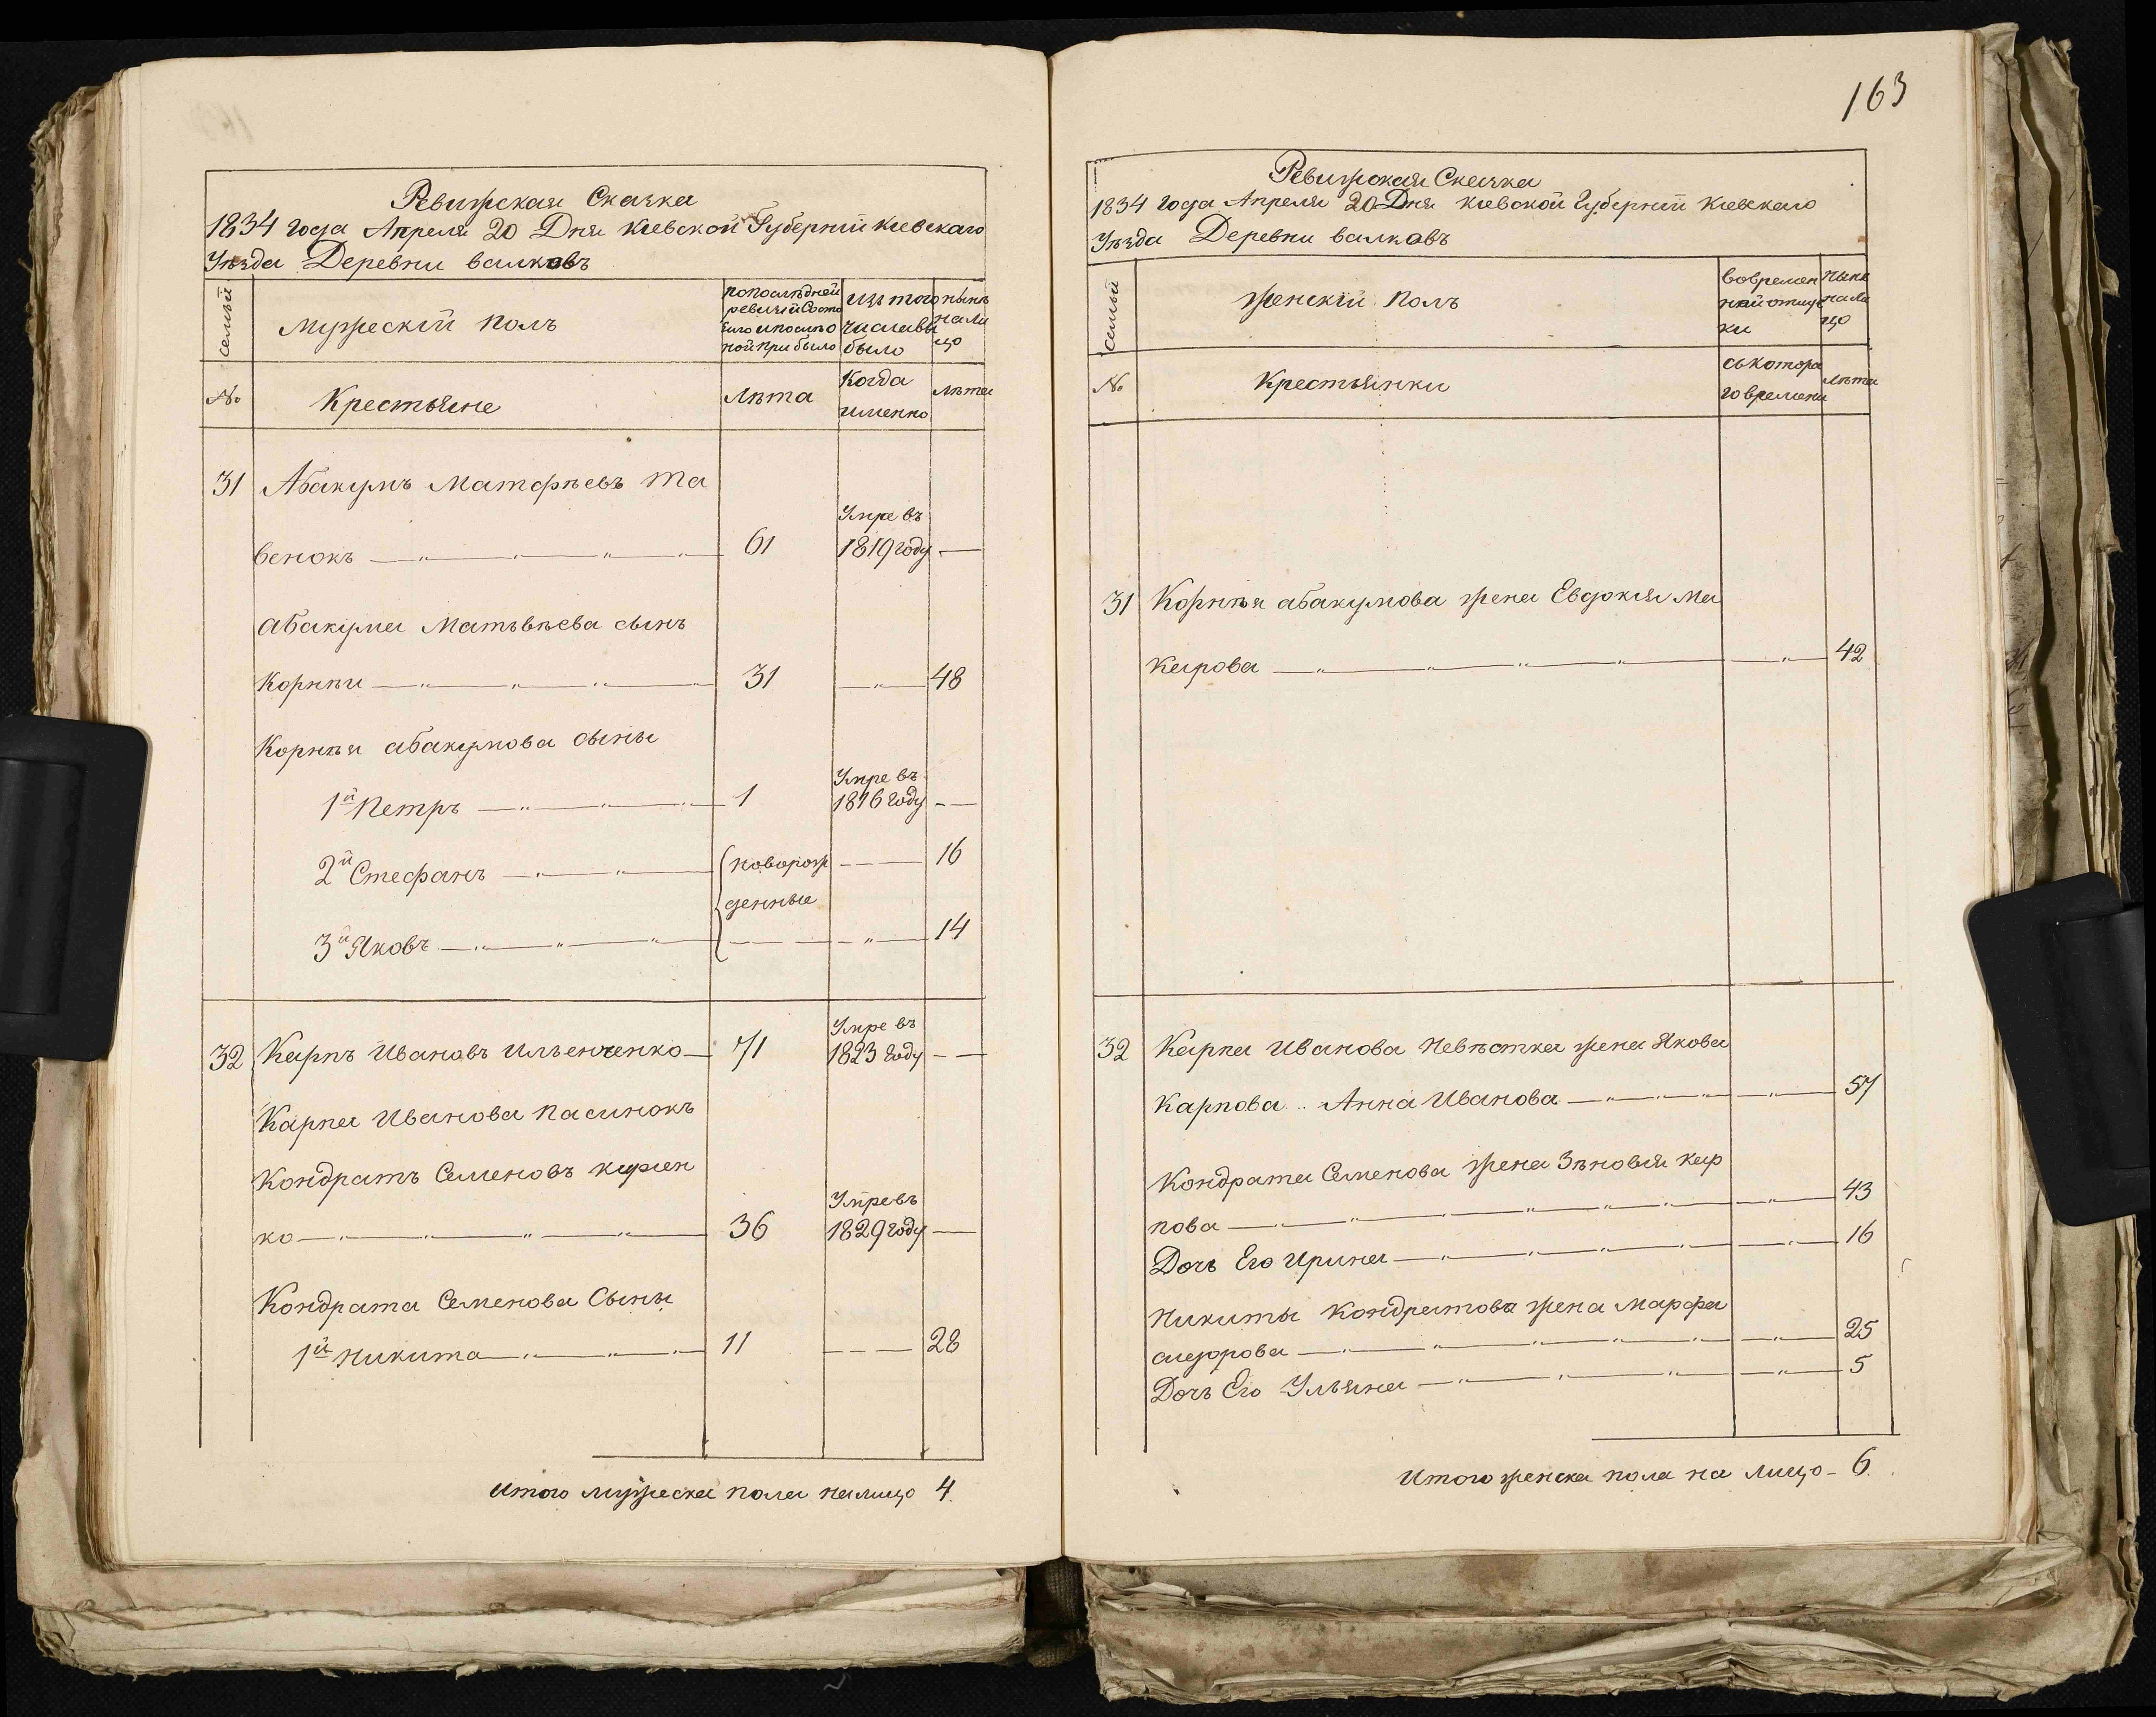 Ревижская Сказка
1834 года Апреля 20 Дня Киевской Губернии Киевскаго
Уѣзда Деревни валковъ
семьи
Мужескій полъ
попослѣдней ревизіи Состо яло ипослѣ оной прибыло
изъ того числа вы было
нынѣ на ли цо
№
Крестьяне
Лѣта
Когда именно
лѣта
31 Абакумъ Матфѣевъ Та
венокъ 61 Умре въ 1819 году —
абакума Матьвѣева сынъ
Корнѣи 31 — 48
Корнѣя абакумова сыны
1й Петръ 1 Умре въ 1816 году —
2й Стефанъ новорож — 16
денные
3й Яковъ — — 14
32 Карпъ Ивановъ Ильенченко 71 Умре въ 1823 году —
Карпа Иванова пасинокъ
Кондратъ Семеновъ
ко 36 Умре въ 1829 году —
Кондрата Семенова Сыны
1й Никита 11 — 28
Итого мужеска пола налицо 4
163
Ревижская Сказка
1834 года Апреля 20 Дня киевской Губерніи Киевскаго
Уѣзда Деревни валковъ
семьи
женскій полъ
вовремен ной отлуч ки
Нынѣ на ли цо
№
Крестьянки
съкотора го времени
лѣта
31 Корнѣя абакумова жена Евдокия Ма
карова — 42
32 Карпа Иванова Невѣстка жена Якова
Карпова Анна Иванова — 57
Кондрата Семенова жена Зѣновия кар
пова — 43
Дочь Его Ирина — 16
Никиты Кондратова жена Марфа
сидорова — 25
Дочь Его Ульяна — 5
Итого женска пола на лицо 6.